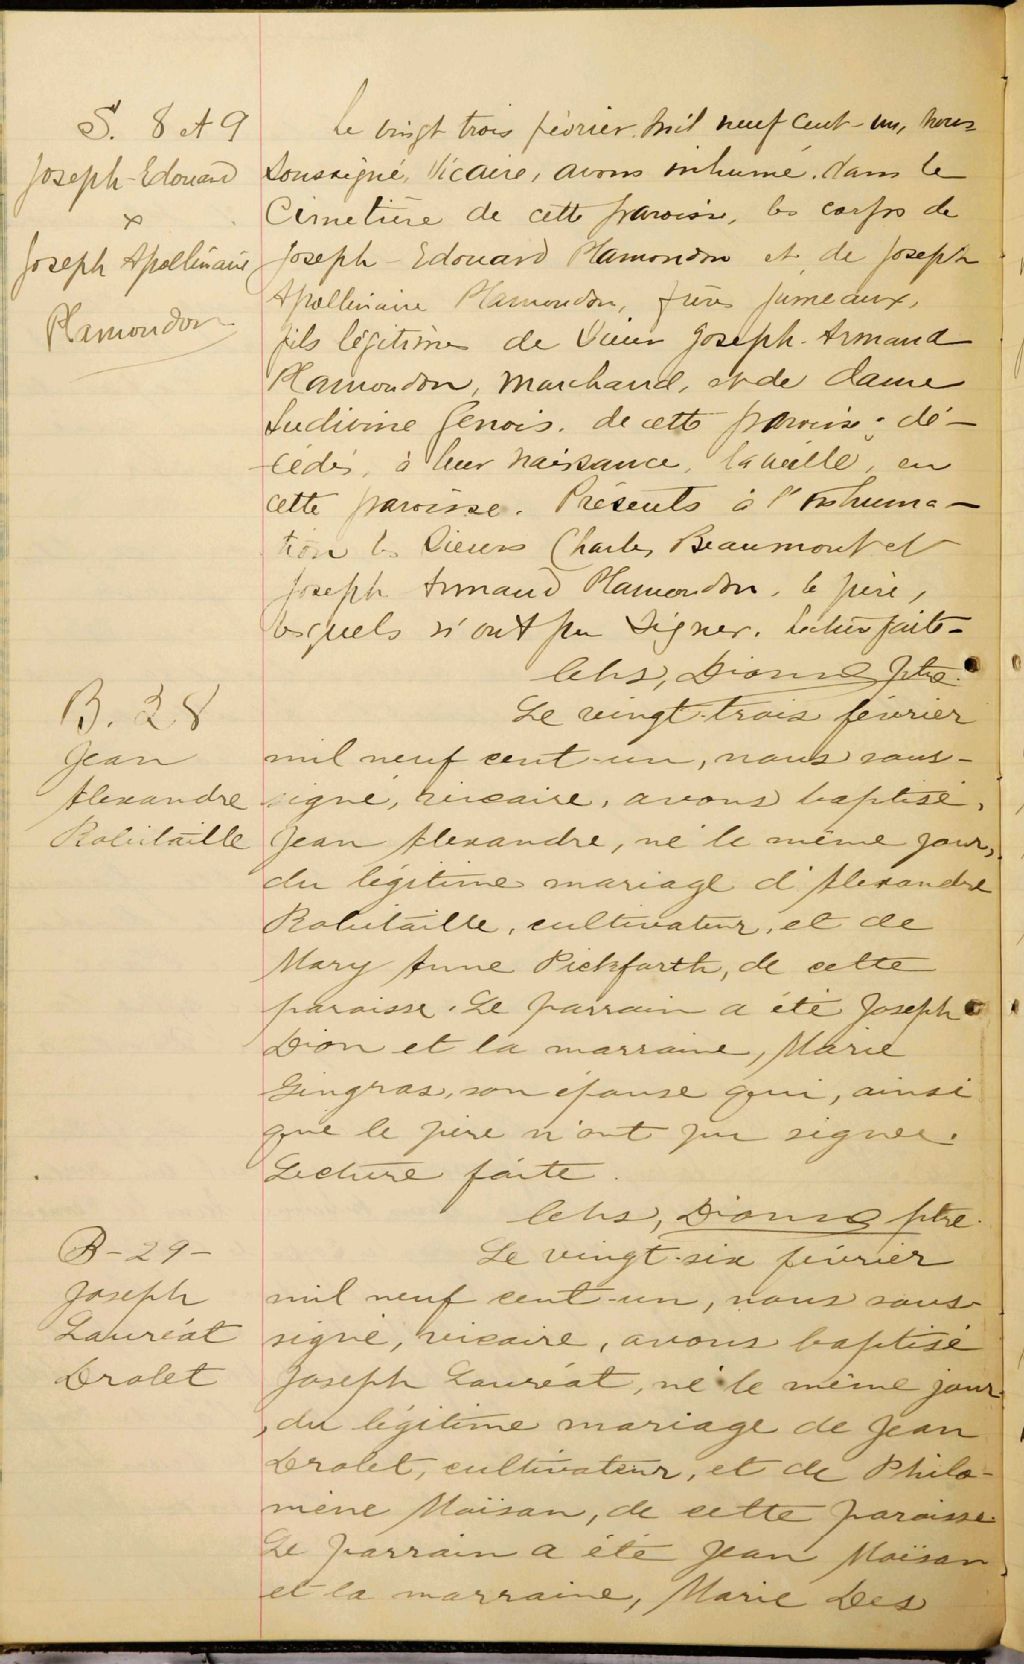 S. 8 et 9
Joseph-Edouard
+
Joseph Apollinaire
Plamondon
Le vingt trois février mil neuf cent-un, nous
soussigné, Vicaire, avons inhumé dans le
Cimetière de cette paroisse, les corps de
Joseph-Edouard Plamondon et de Joseph
Apollinaire Plamondon, frères jumeaux,
fils légitimes de Sieur Joseph-Armand
Plamondon, marchand, et de dame
Ludivine Genois, de cette paroisse; dé-
cédés, à leur naissance, la veille, en
cette paroisse. Présents à l'inhuma-
tion les Sieurs Charles Beaumont et
Joseph Armand Plamondon, le père,
lesquels n'ont pu signer. Lecture faite-
Chs, Dionne ptre.
B. 28
Jean
Alexandre
Robitaille
Le vingt-trois février
mil neuf cent-un, nous sous-
signé, vicaire, avons baptisé,
Jean Alexandre, né le même jour,
du légitime mariage d'Alexandre
Robitaille, cultivateur, et de
Mary Anne Pickforth, de cette
paroisse. Le parrain a été Joseph
Dion et la marraine, Marie
Gingras, son épouse qui, ainsi
que le père n'ont pu signer.
Lecture faite.
Chs, Dionne ptre.
B-29-
Joseph
Lauréat
Drolet
Le vingt-six février
mil neuf cent-un, nous sous-
signé, vicaire, avons baptisé
Joseph Lauréat, né le même jour
, du légitime mariage de Jean
Drolet, cultivateur, et de Philo-
mène Moïsan, de cette paroisse.
Le parrain a été Jean Moïsan
et la marraine, Marie Des